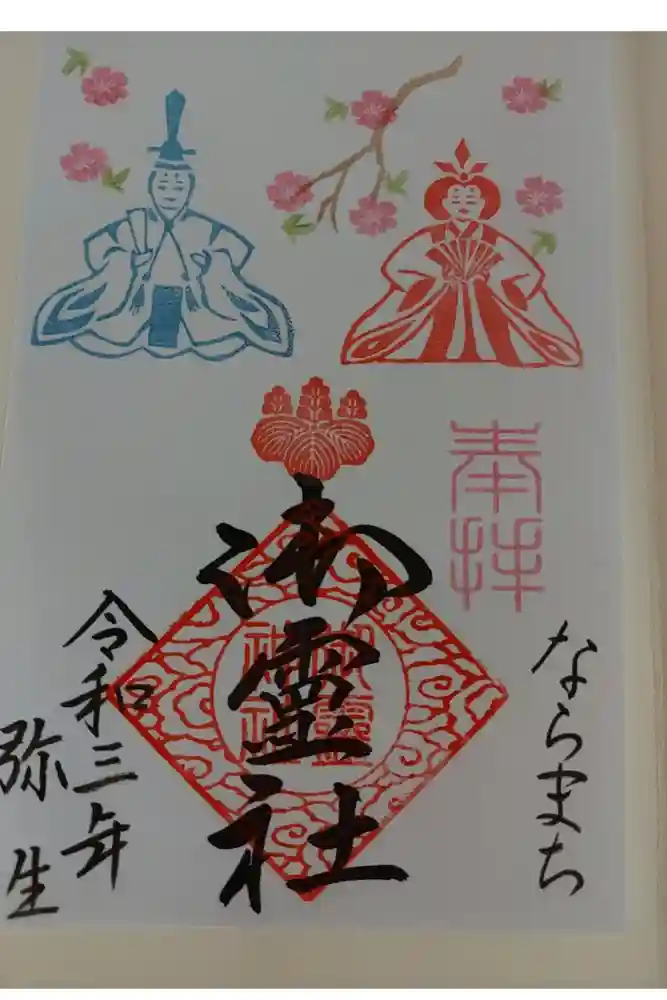 奉拝
ならまち
御霊社
御霊
神社
令和三年
弥生